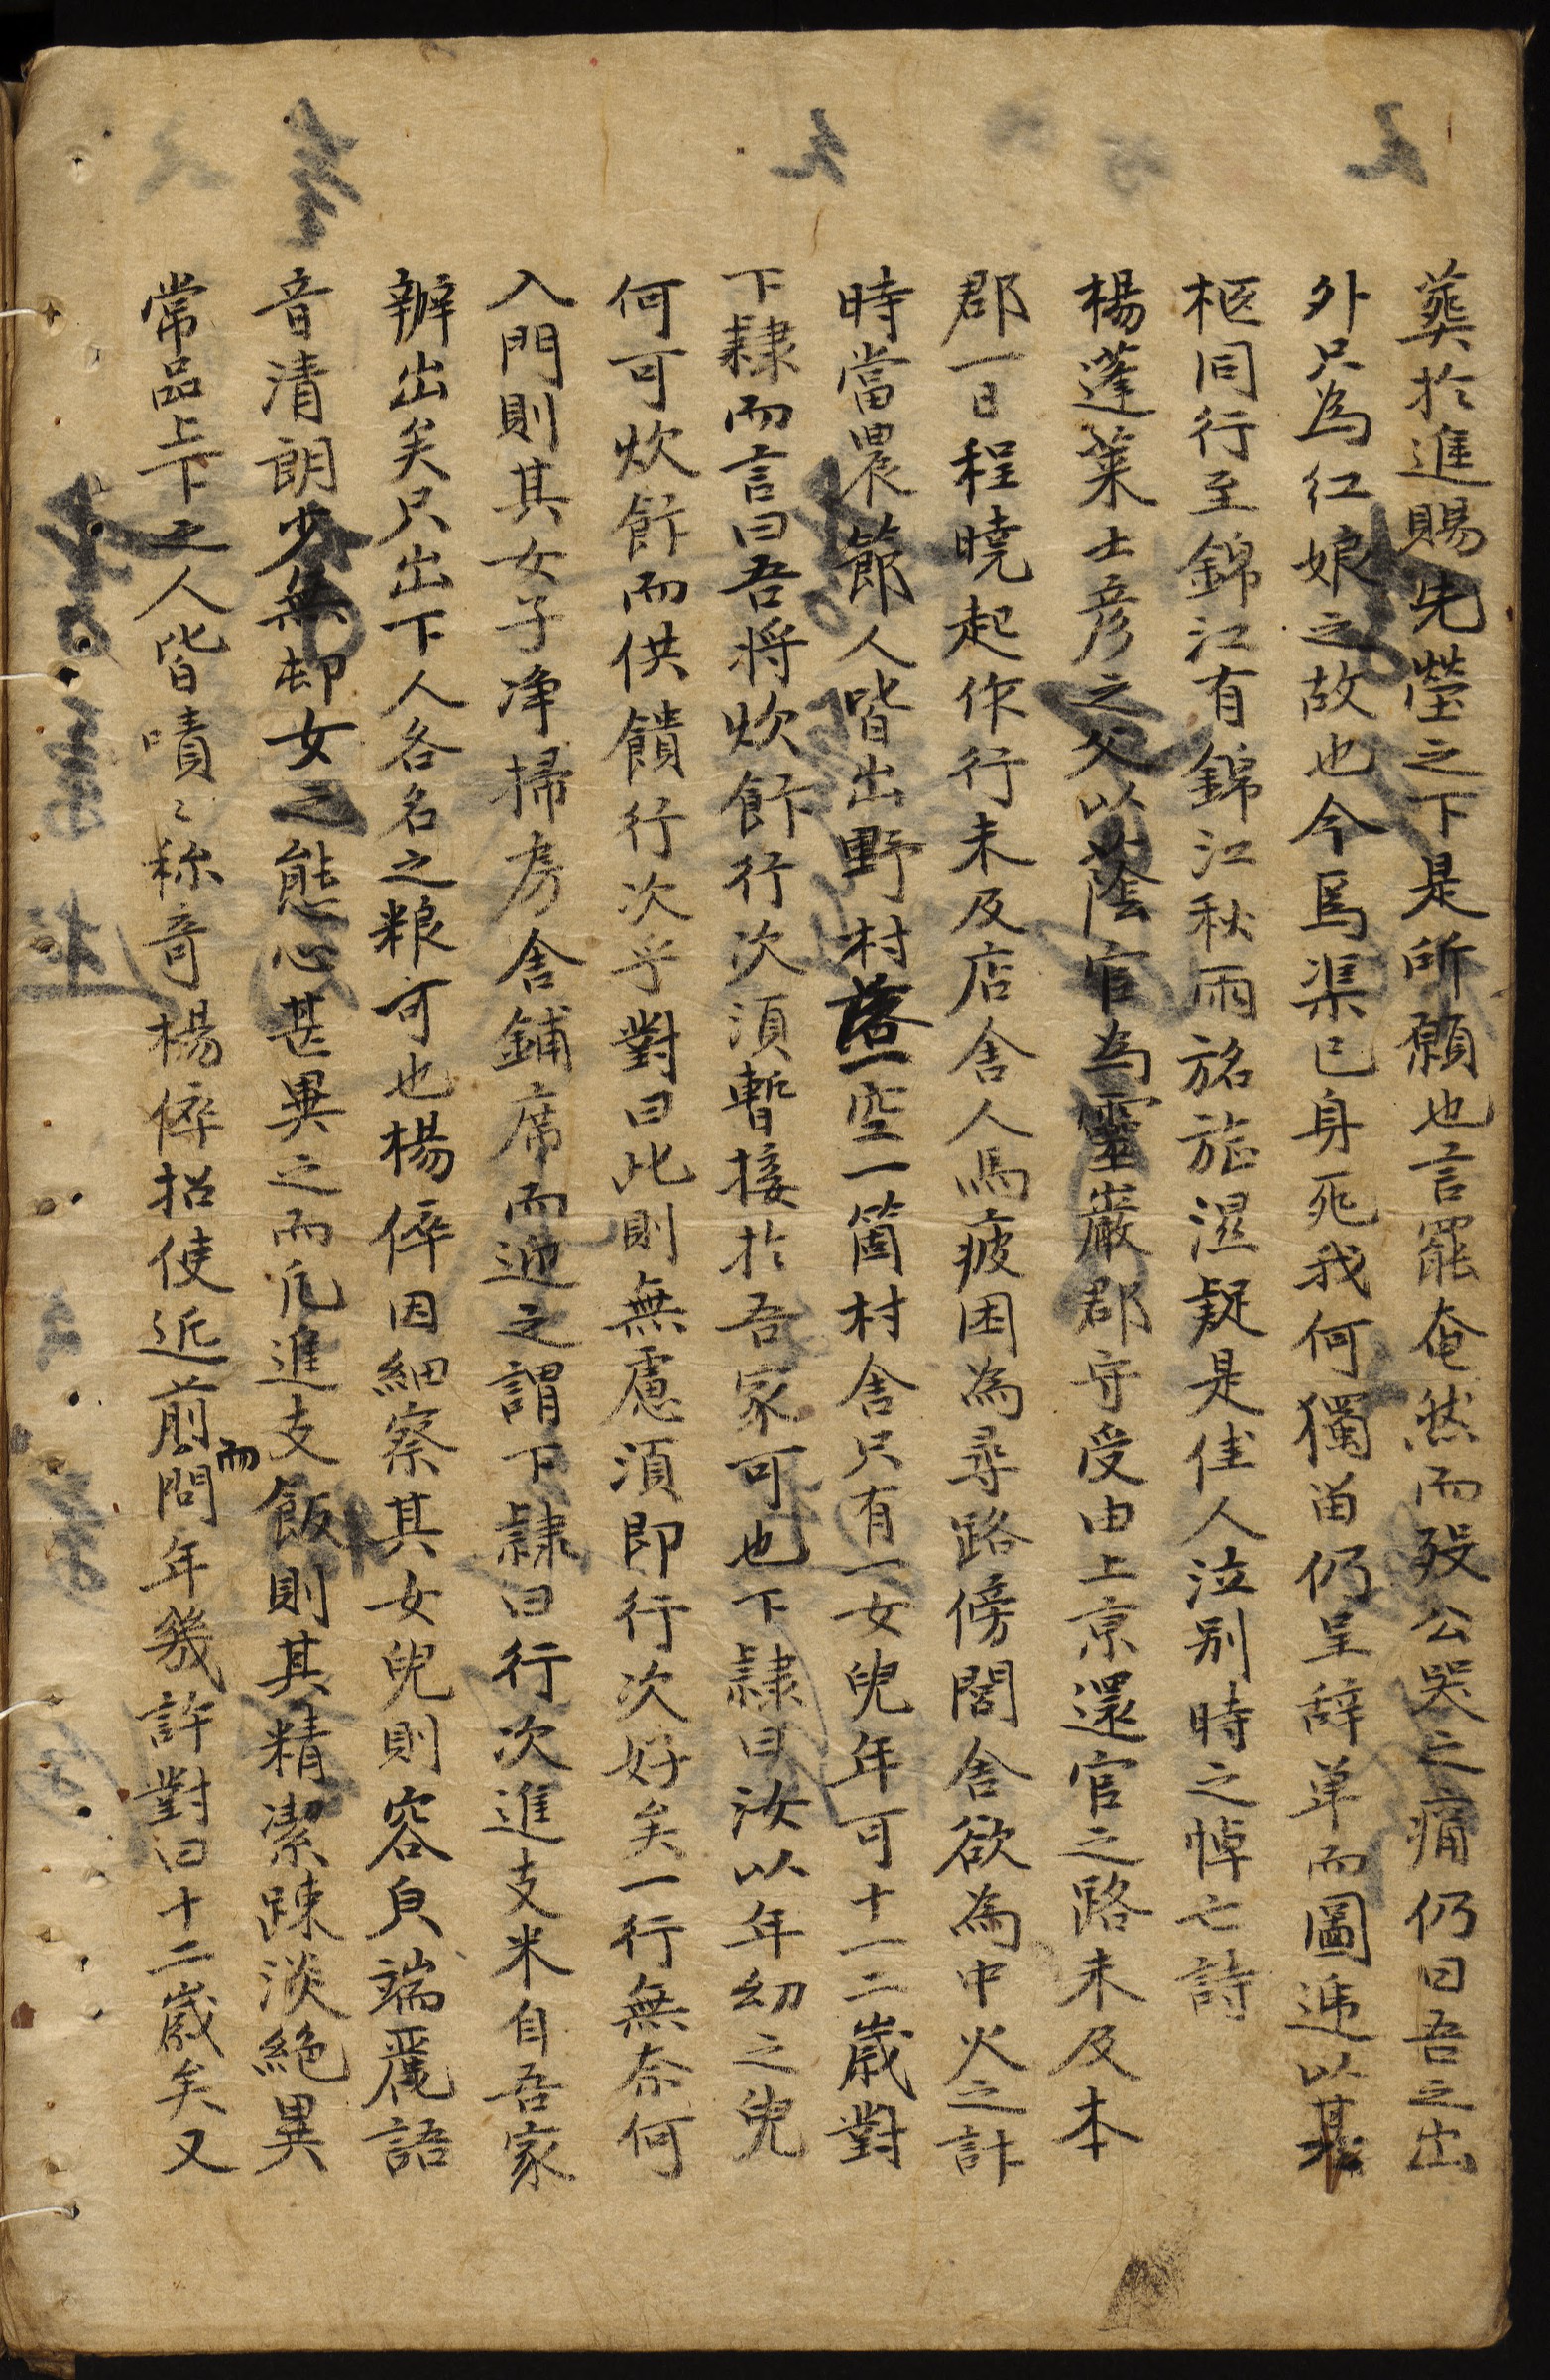 葬於進賜先塋之下是所願也言罷奄然而歿公哭之痛仍曰吾之出
外只為紅娘之故也今焉渠已身死我何獨留仍呈辞单而圖遞以其
柩同行至錦江有錦江秋雨銘旌濕疑是佳人泣别時之悼亡詩
楊蓬萊士彦之父以蔭官為靈巖郡守受由上京還官之路未及本
郡一日程曉起作行未及店舍人馬疲困為尋路傍閭舍欲為中火之計
時當農節人皆出野村落一空一箇村舍只有一女兒年可十一二歲對
下隸而言曰吾将炊飯行次須暫接於吾家可也下隸曰汝以年幼之兒
何可炊飯而供饋行次乎對曰此則無慮須即行次好矣一行無奈何
入門則其女子净掃房舍鋪席而迎之謂下隸曰行次進支米自吾家
辦出矣只出下人各名之粮可也楊倅因細察其女兒則容皃端麗語
音清朗少無邨女之態心甚異之而凢進支飯則其精潔踈淡絶異
常品上下之人皆嘖〻稱奇楊倅招使近前而問年幾許對曰十二歲矣又